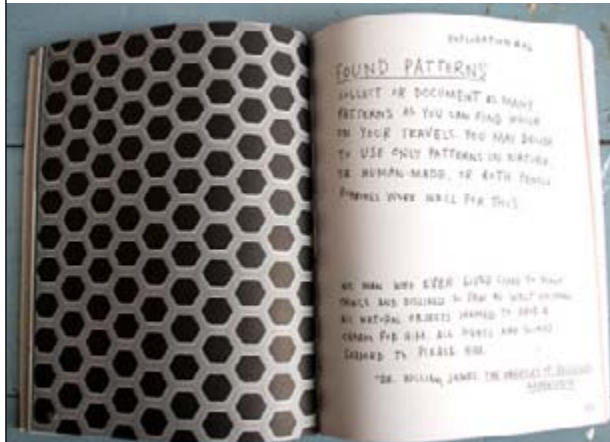 EXPLORATION #26
FOUND PATTERNS
COLLECT OR DOCUMENT AS MANY
PATTERNS AS YOU CAN FIND WHILE
ON YOUR TRAVELS. YOU MAY DECIDE
TO USE ONLY PATTERNS IN NATURE
OR HUMAN-MADE, OR BOTH. PENCIL
RUBBINGS WORK WELL FOR THIS.
NO MAN WHO EVER LIVED LIKED SO MANY
THINGS AND DISLIKED SO FEW AS WALT WHITMAN.
ALL NATURAL OBJECTS SEEMED TO HAVE A
CHARM FOR HIM. ALL SIGHTS AND SOUNDS
SEEMED TO PLEASE HIM.
-DR. WILLIAM JAMES, THE VARIETIES OF RELIGIOUS
EXPERIENCE